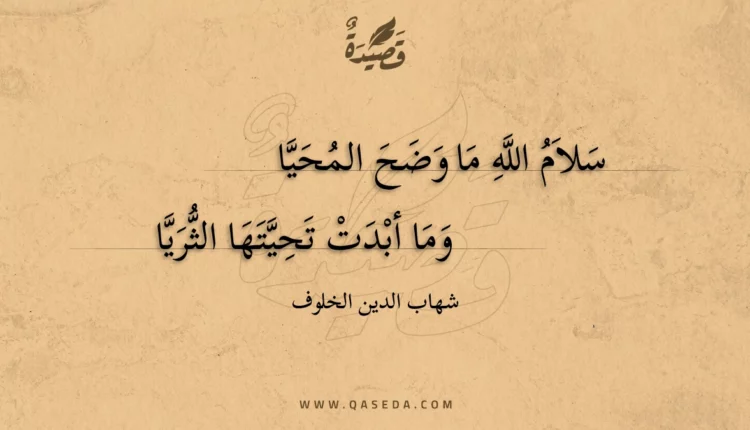 قَصِيدَةٌ
سَلاَمُ اللَّهِ مَا وَضَحَ المُحَيَّا
وَمَا أبْدَتْ تَحِيَّتَهَا الثُّرَيَّا
شهاب الدين الخلوف
WWW.QASEDA.COM